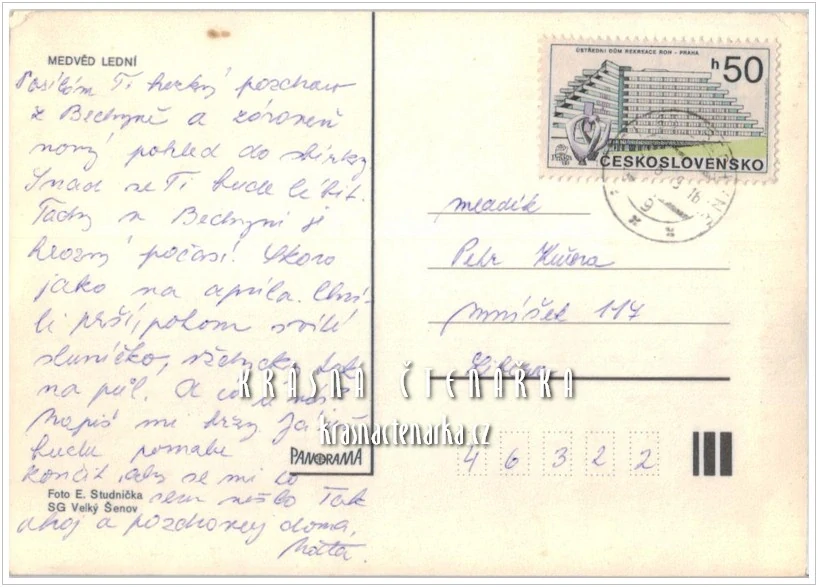 MEDVĚD LEDNÍ
Posílám Ti hezký pozdrav
z Bechyně a zároveň
nový pohled do sbírky
Snad se Ti bude líbit.
Tady v Bechyni je
hrozný počasí. Skoro
jako na apríla. Chví-
li prší, potom svítí
sluníčko, vždycko tak
na půl. A co u vás?
Napiš mi brzy. Já
budu pomalu
končit, aby se mi to
sem nešlo Tak
ahoj a pozdravuj doma,
Foto E. Studnička
SG Velký Šenov
PANORAMA
ÚSTŘEDNÍ DŮM REKREACE ROH - PRAHA
h 50
ČESKOSLOVENSKO
mladík
Petr
Mníšek 117
46322
KRÁSNÁ ČTENÁŘKA
krasnactenarka.cz